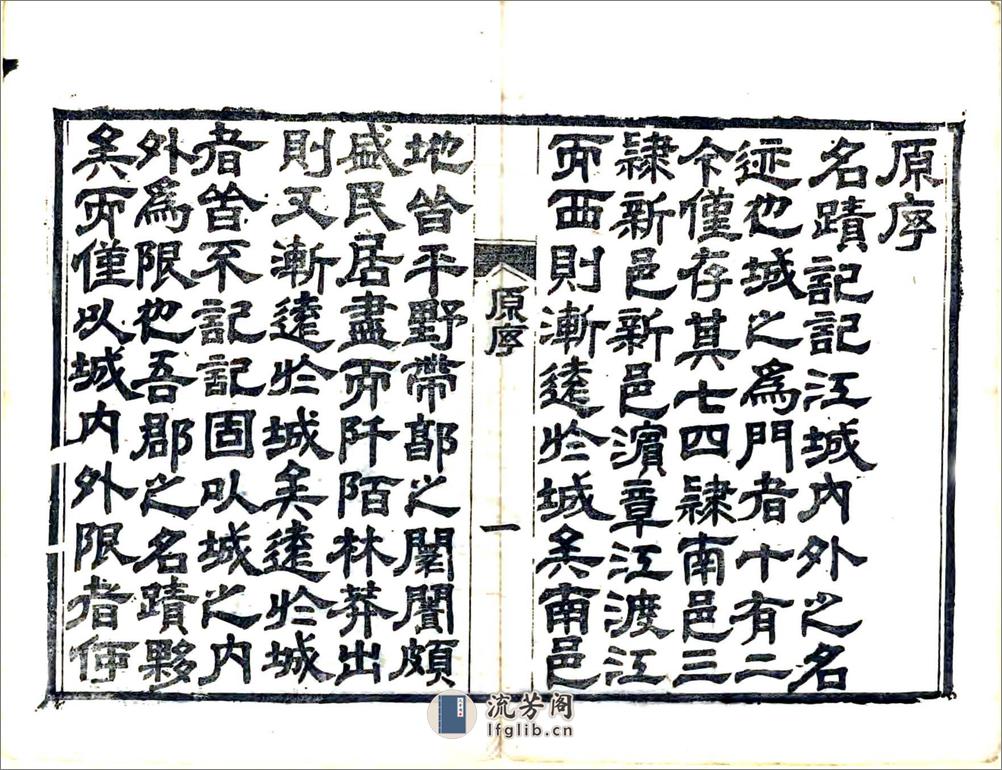 原序
名蹟記記江城内外之名
迹也城之為門者十有二
今僅存其七四隸南邑三
隸新邑新邑濵章江渡江
而西則漸遠於城矣南邑
原序
一
地皆平野帶郭之闤闠頗
盛民居盡而阡陌林莽出
則又漸遠於城矣遠於城
者皆不記記固以城之内
外為限也吾郡之名蹟夥
矣而僅以城内外限者何
流芳阁
lfglib.cn